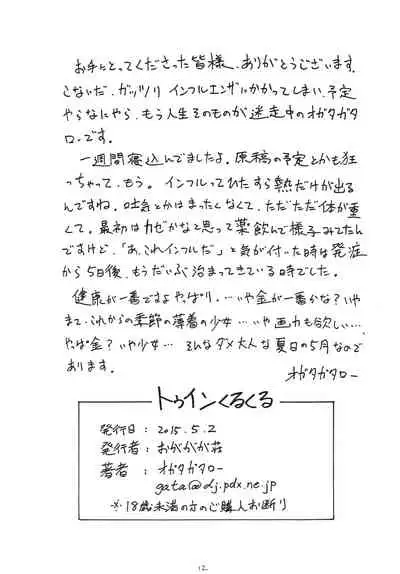 お手にとってくださった皆様、ありがとうございます。
こないだ、ガッツリ インフルエンザにかかってしまい、予定
やらなにやら、もう人生そのものが迷走中のオガタガタ
ロ-です。
一週間寝込んでましたよ。原稿の予定とかも狂
っちゃって、もう。インフルってひたすら熱だけが出る
んですね。吐気とかはまったくなくて、ただただ体が重
くて。最初はカゼかなと思って薬飲んで様子みてたん
ですけど、「あ、これインフルだ」と気が付いた時は発症
から5日後、もうだいぶ治まってきている時でした。
健康が一番ですよやっぱり。…いや金が一番かな?いや
まて、これからの季節の薄着の少女…いや画力も欲しい…
やっぱ金?いや少女… そんなダメ大人な夏日の5月なので
あります。
オガタガタロー
トゥインくるくる
発行日 : 2015.5.2
発行者 : おがわが荘
著者 : オガタガタロー
gata@dj.pdx.ne.jp
※18歳未満の方のご購入お断り
12